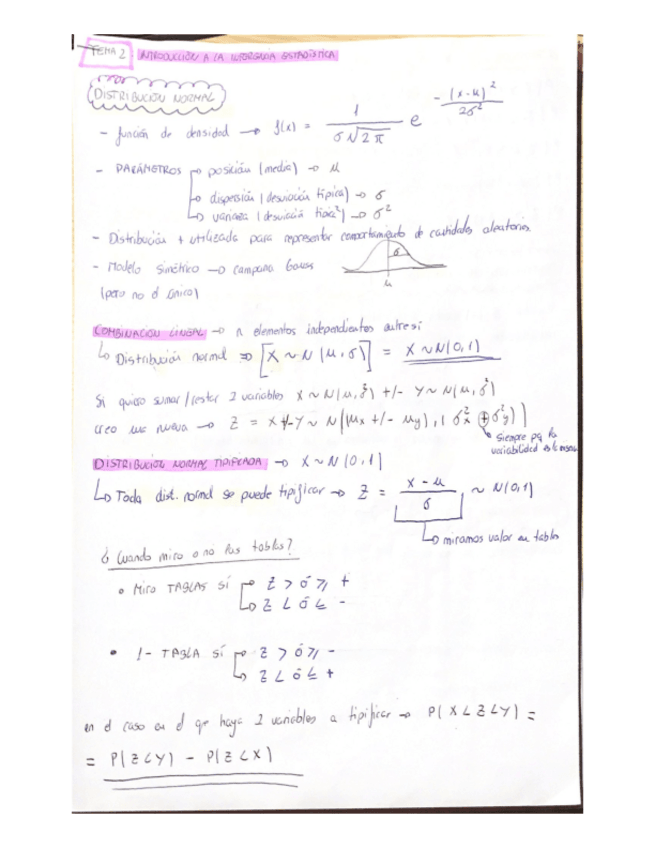 TEMA 2 INTRODUCCIÓN A LA INFERENCIA ESTADÍSTICA
DISTRIBUCIÓN NORMAL
- función de densidad → f(x) = 1 / σ√2π e^ -(x-μ)² / 2σ²
- PARÁMETROS → posición (media) → μ
→ dispersión (desviación típica) → σ
→ varianza (desviación típica²) → σ²
- Distribución + utilizada para representar comportamiento de cantidades aleatorias
- Modelo simétrico → campana Gauss
σ
μ
(pero no el único)
COMBINACIÓN LINEAL → n elementos independientes entre sí
↳ Distribución normal ⇒ [X ~ N(μ, σ)] = X ~ N(0,1)
Si quiero sumar/restar 2 variables X ~ N(μ, σ²) +/- Y ~ N(μ, σ²)
creo una nueva → Z = X +/- Y ~ N((μx +/- μy), (σ²x + σ²y))
siempre pq la
variabilidad es la misma
DISTRIBUCIÓN NORMAL TIPIFICADA → X ~ N(0,1)
↳ Toda dist. normal se puede tipificar → Z = X - μ / σ ~ N(0,1)
↳ miramos valor en tabla
¿Cuando miro o no las tablas?
• Miro TABLAS SÍ → Z > ó ≥ +
↳ Z < ó ≤ -
• 1 - TABLA SÍ → Z > ó ≥ -
↳ Z < ó ≤ +
en el caso en el que haya 2 variables a tipificar → P(X < Z < Y) =
= P(Z < Y) - P(Z < X)